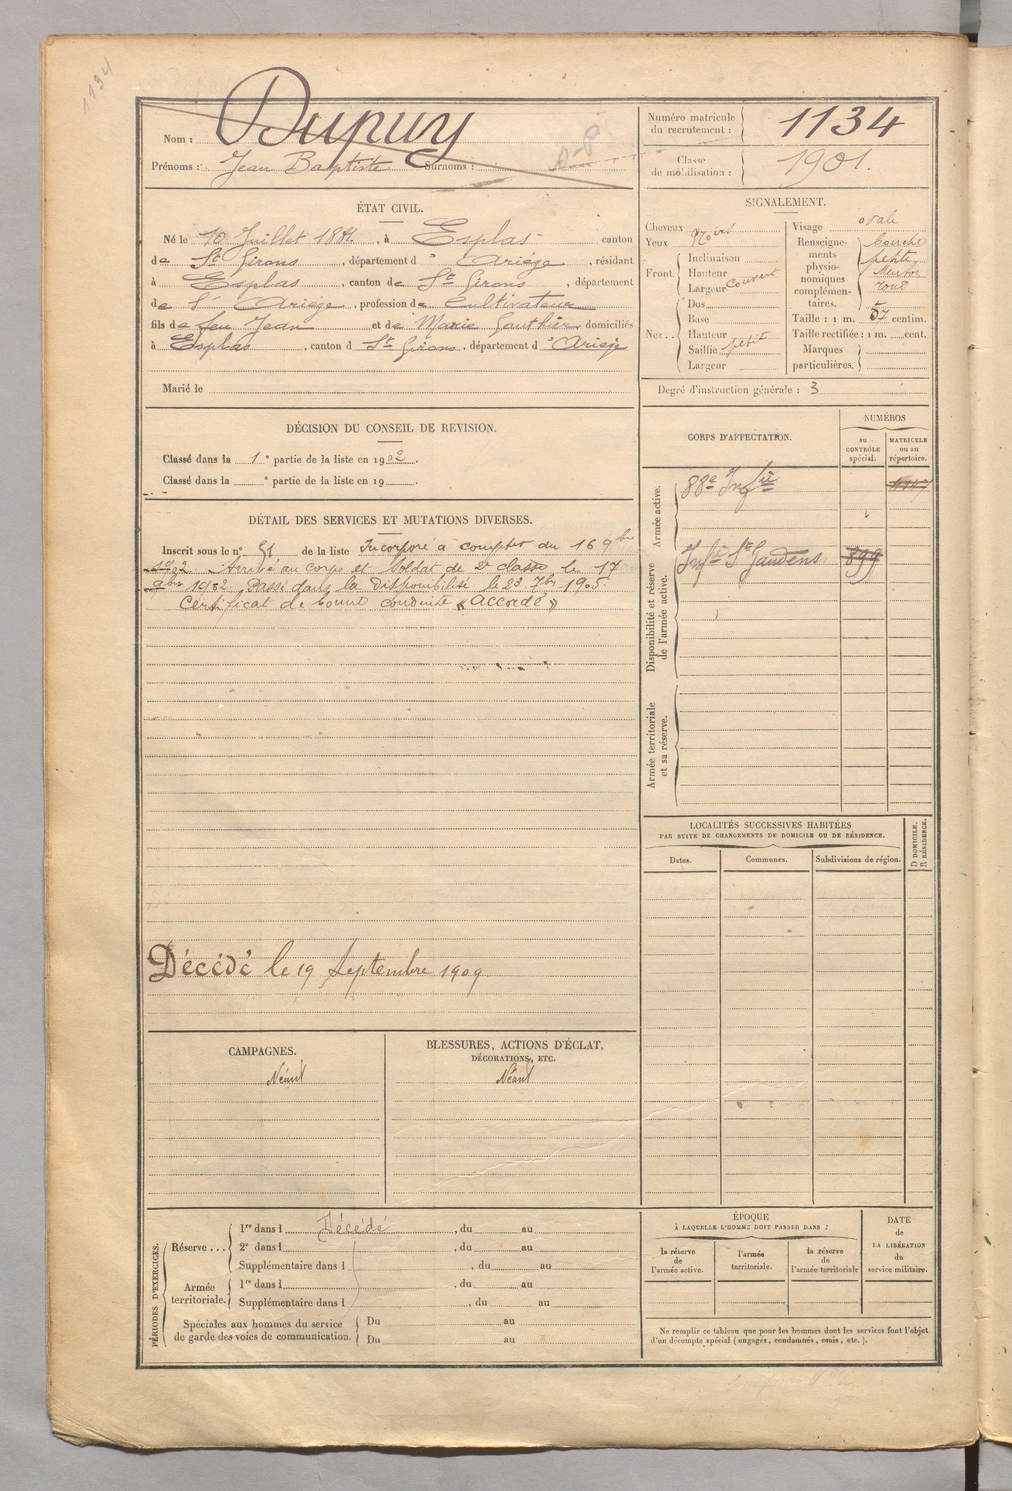 1134
Nom : Dupuy
Prénoms : Jean Baptiste Surnoms :
Numéro matricule du recrutement : 1134
Classe de mobilisation : 1901.
ÉTAT CIVIL.
Né le 10 Juillet 1881, à Esplas canton
de St Girons, département d' Ariège, résidant
à Esplas, canton de St Girons, département
de l' Ariège, profession de Cultivateur
fils de feu Jean et de Marie Gauthier domiciliés
à Esplas, canton d St Girons, département d' Ariège
Marié le
SIGNALEMENT.
Cheveux
Yeux noirs
Front. Inclinaison
Hauteur
Largeur couvert
Nez.. Dos
Base
Hauteur
Saillie petit
Largeur
Visage ovale
Renseignements physionomiques complémentaires. bouche petite Menton rond
Taille : 1 m. 57 centim.
Taille rectifiée : 1 m. cent.
Marques particulières.
Degré d'instruction générale : 3
DÉCISION DU CONSEIL DE REVISION.
Classé dans la 1e partie de la liste en 1902.
Classé dans la e partie de la liste en 19
CORPS D'AFFECTATION.
NUMÉROS
au CONTRÔLE spécial.
MATRICULE ou au répertoire.
Armée active.
88e Infie
Disponibilité et réserve de l'armée active.
Infie St Gaudens 899
Armée territoriale et sa réserve.
DÉTAIL DES SERVICES ET MUTATIONS DIVERSES.
Inscrit sous le n° 51 de la liste Incorporé à compter du 16 9bre
1902 Arrivé au corps et Soldat de 2e classe le 17
9bre 1902. Passé dans la disponibilité le 23 7bre 1905.
Certificat de bonne conduite « accordé »
Décédé le 19 Septembre 1909
LOCALITÉS SUCCESSIVES HABITÉES
PAR SUITE DE CHANGEMENTS DE DOMICILE OU DE RÉSIDENCE.
Dates.
Communes.
Subdivisions de région.
D DOMICILE. R RÉSIDENCE.
CAMPAGNES.
Néant
BLESSURES, ACTIONS D'ÉCLAT,
DÉCORATIONS, ETC.
Néant
PÉRIODES D'EXERCICES.
Réserve... 1re dans l Décédé, du au
2e dans l, du au
Supplémentaire dans l, du au
Armée territoriale. 1re dans l, du au
Supplémentaire dans l, du au
Spéciales aux hommes du service de garde des voies de communication. Du au
Du au
ÉPOQUE
À LAQUELLE L'HOMME DOIT PASSER DANS :
la réserve de l'armée active.
l'armée territoriale.
la réserve de l'armée territoriale
DATE de LA LIBÉRATION du service militaire.
Ne remplir ce tableau que pour les hommes dont les services font l'objet
d'un décompte spécial (engagés, condamnés, omis, etc.).